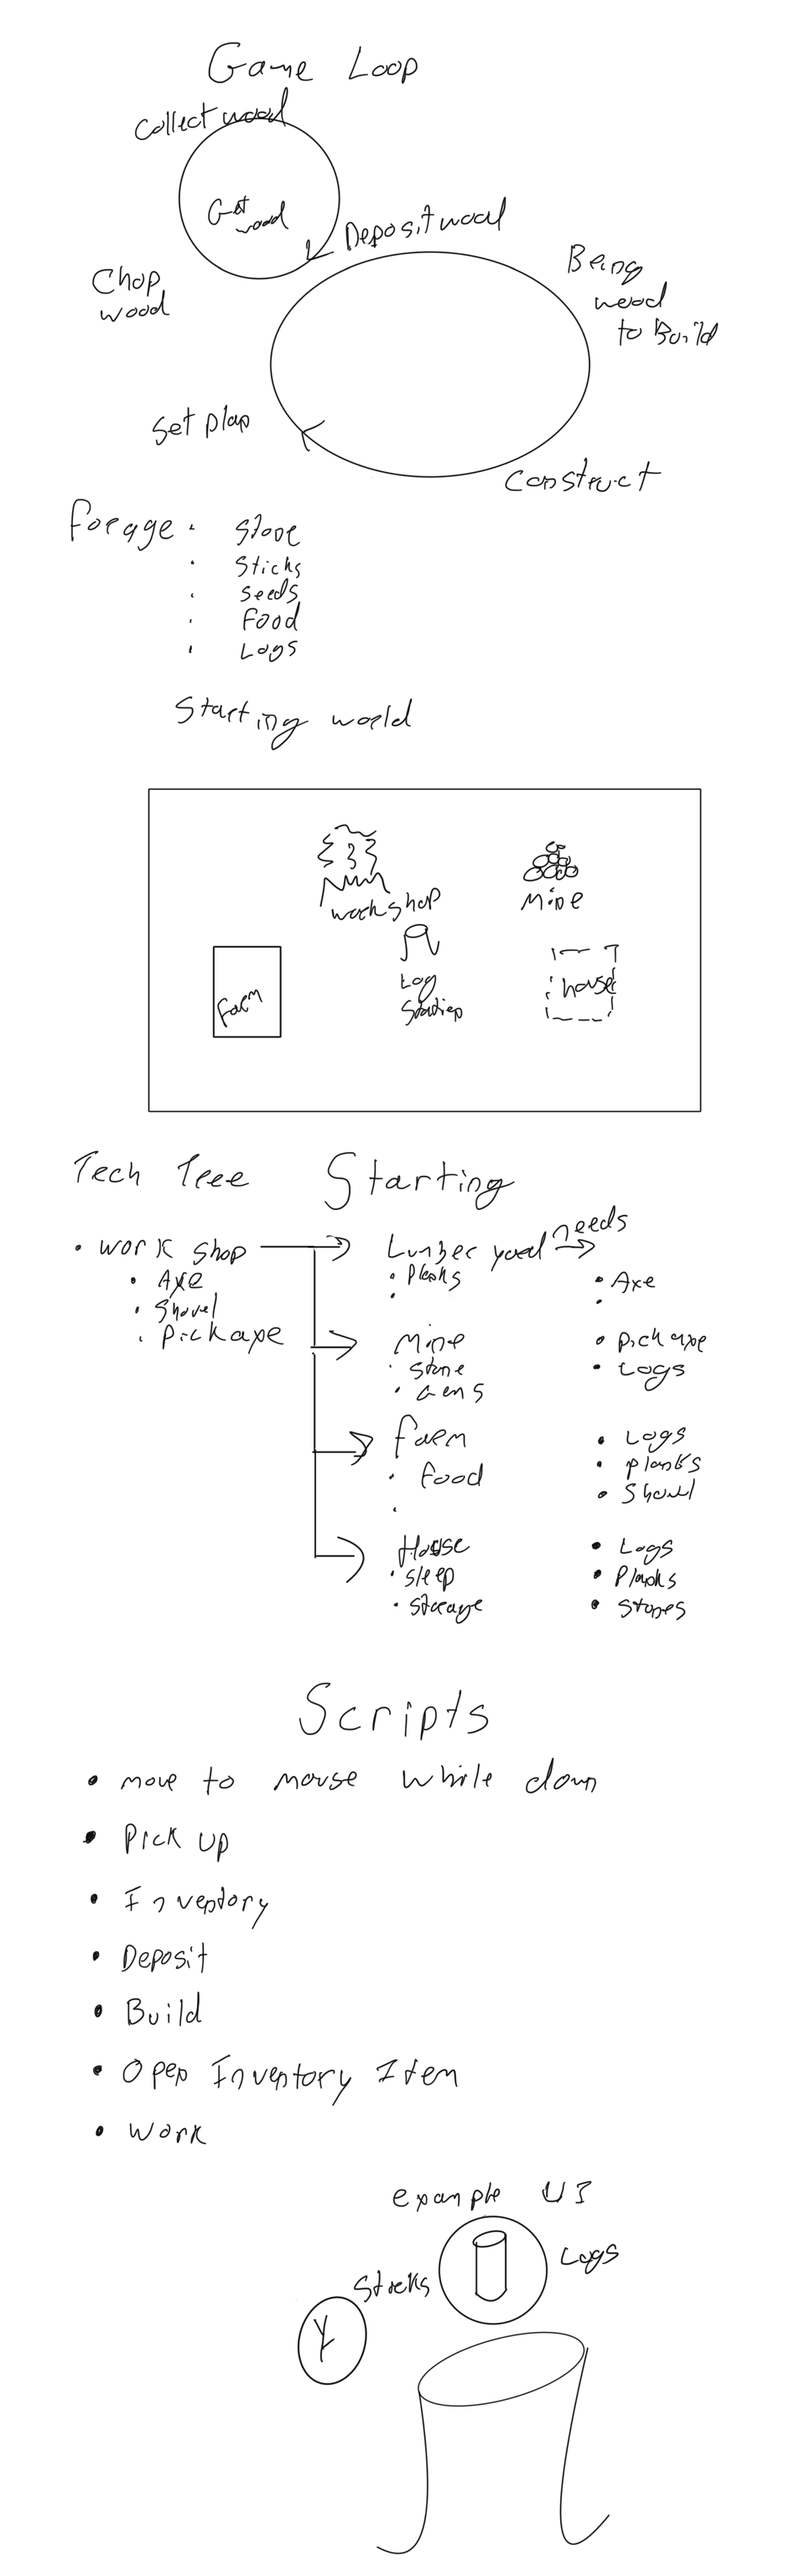 Game Loop
Collect wood
Get
wood
Deposit wood
Chop
wood
Bring
wood
to Build
Set plan
Construct
Forage
Stone
Sticks
Seeds
Food
Logs
Starting world
workshop
Mine
Log
Station
Farm
house
Tech Tree Starting
work shop
Axe
Shovel
Pickaxe
Lumber yard needs
Planks
Axe
Mine
Stone
Gems
Pickaxe
Logs
Farm
Food
Logs
Planks
Shovel
House
Sleep
Storage
Logs
Planks
Stones
Scripts
move to mouse while down
Pick up
Inventory
Deposit
Build
Open Inventory Item
Work
example UI
Logs
Sticks